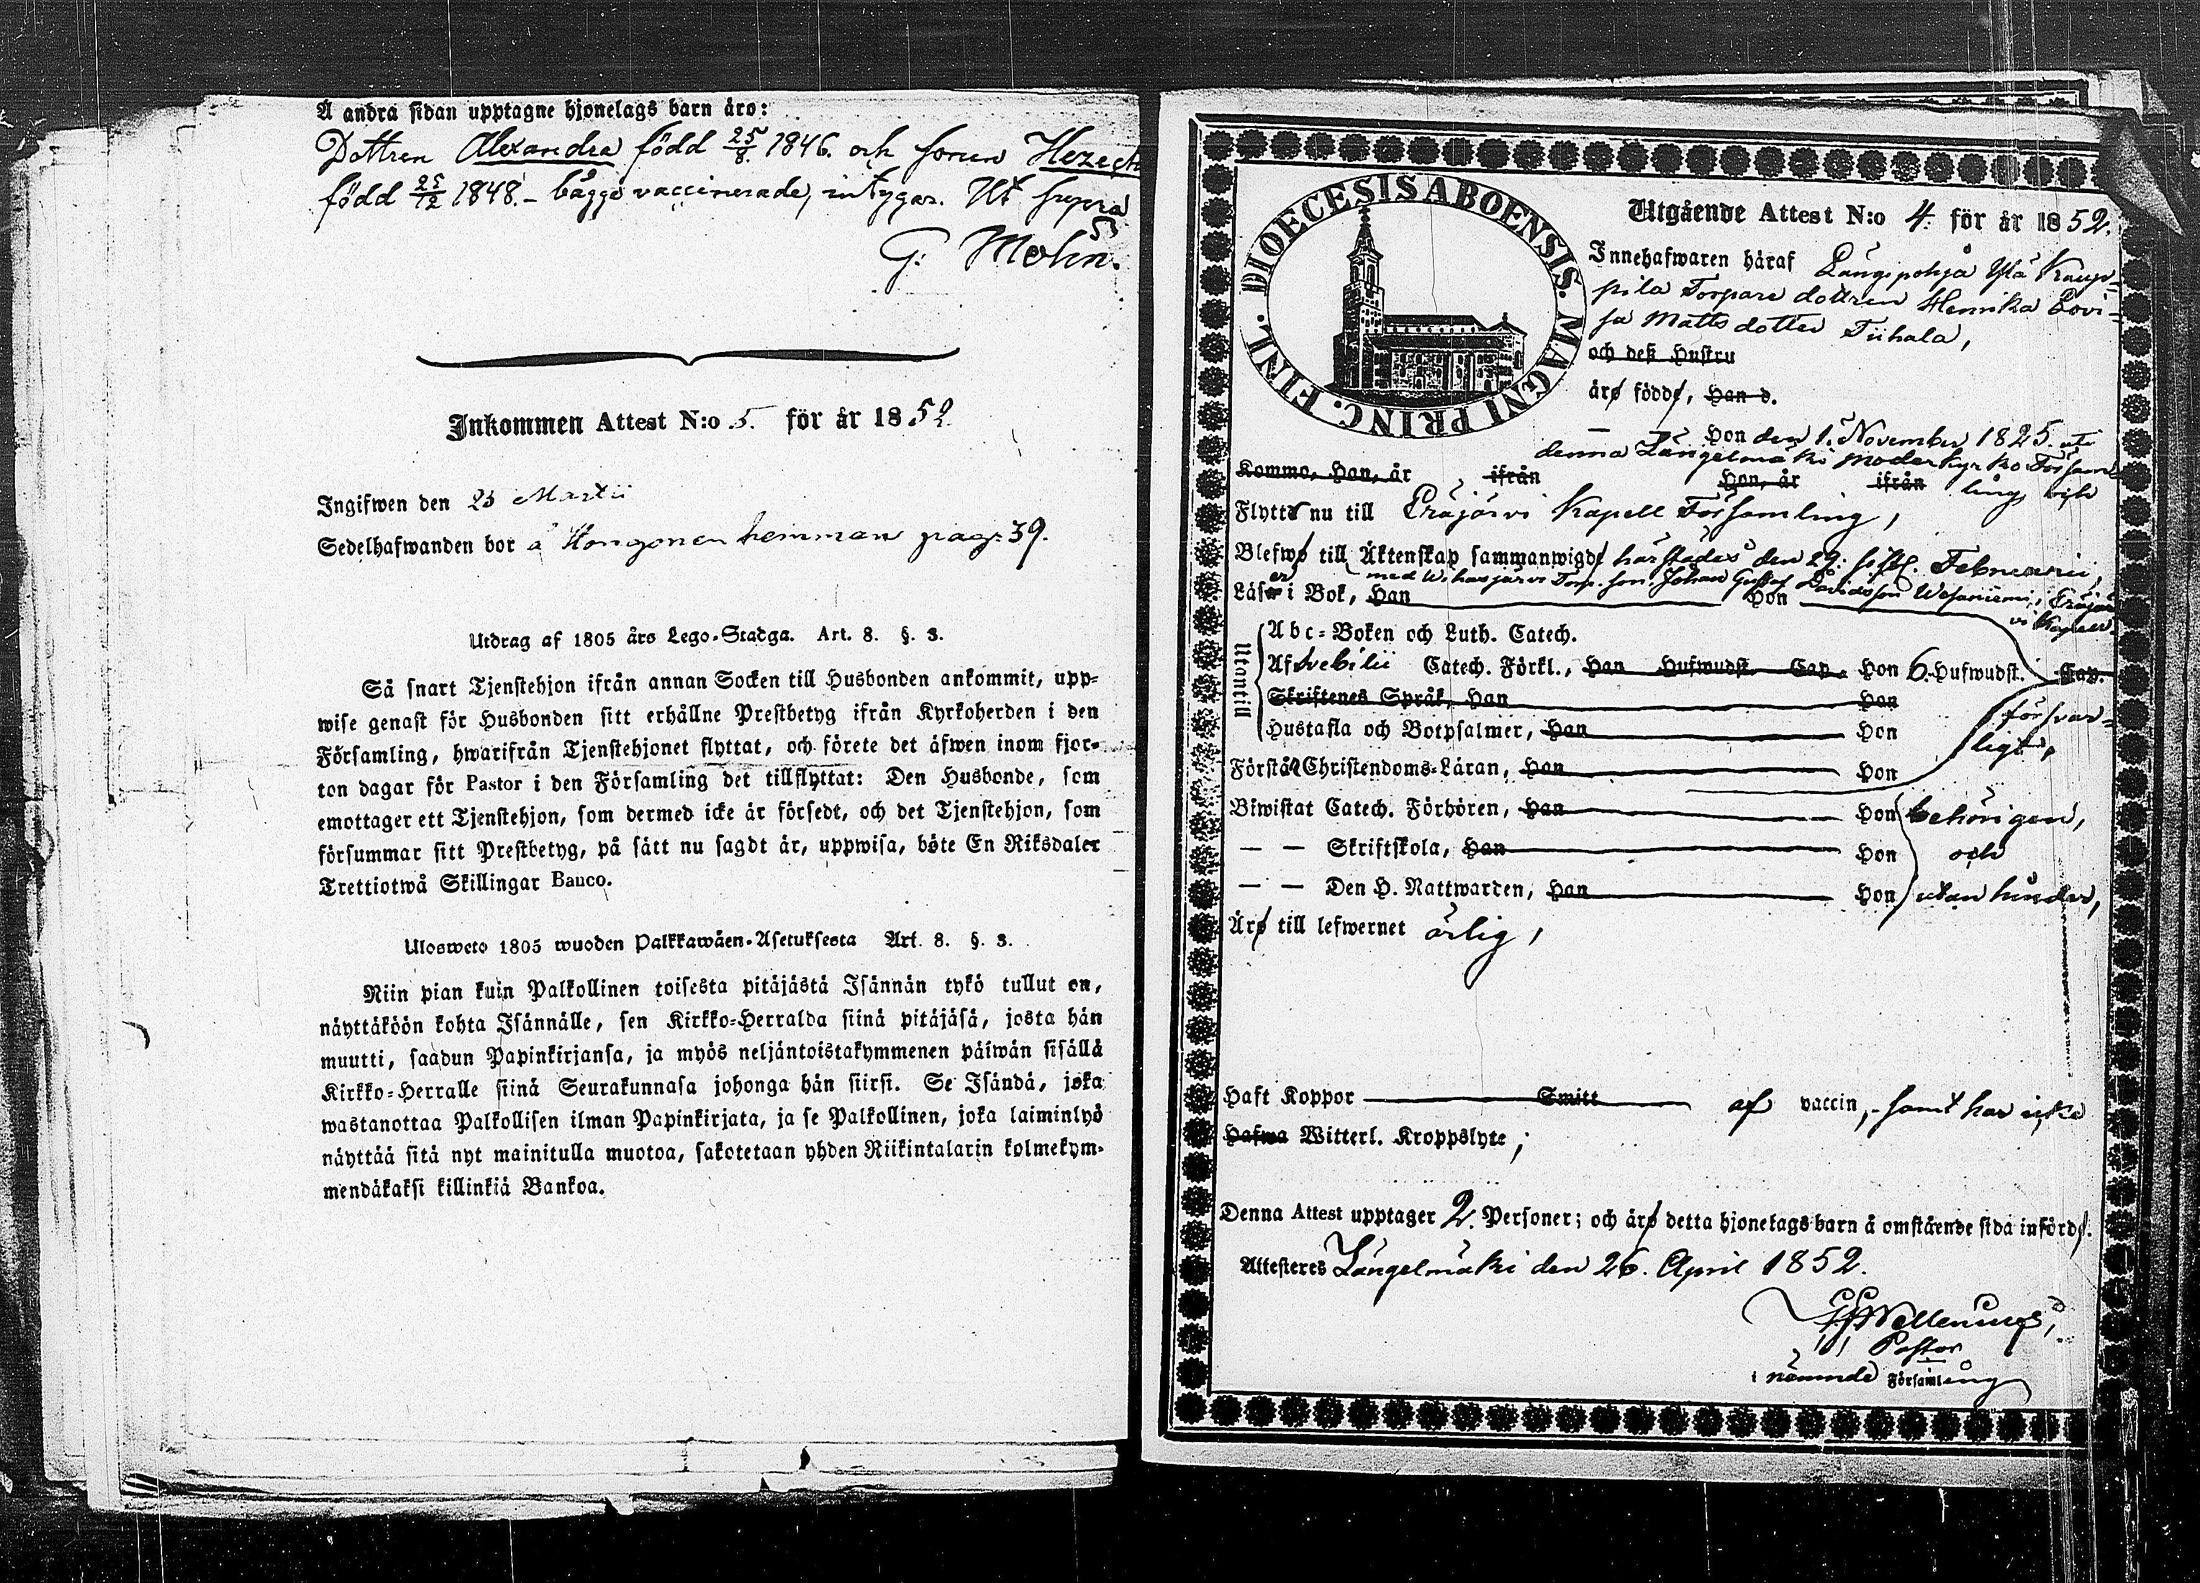 Å andra sidan upptagne hjonelags barn äro:
Dottren Alexandra född 25/8 1846. och sonen Hezech
född 25/12 1848. – bägge vaccinerade, intygar. Ut supra
G: Molin.
Inkommen Attest N:o 5. för år 1852.
Ingifwen den 23 Martii
Sedelhafwanden bor å Hongonen hemman pag. 39.
Utdrag af 1805 års Lego-Stadga. Art. 8. §. 3.
Så snart Tjenstehjon ifrån annan Socken till Husbonden ankommit, upp-
wise genast för Husbonden sitt erhållne Prestbetyg ifrån Kyrkoherden i den
Församling, hwarifrån Tjenstehjonet flyttat, och förete det äfwen inom fjor-
ton dagar för Pastor i den Församling det tillflyttat: Den Husbonde, som
emottager ett Tjenstehjon, som dermed icke är försedt, och det Tjenstehjon, som
försummar sitt Prestbetyg, på sätt nu sagdt är, uppwisa, böte En Riksdaler
Trettiotwå Skillingar Banco.
Ulosweto 1805 wuoden Palkkawäen-Asetuksesta Art. 8. §. 3.
Niin pian kuin Palkollinen toisesta pitäjästä Isännän tykö tullut on,
näyttäköön kohta Isännälle, sen Kirkko-Herralda siinä pitäjäsä, josta hän
muutti, saadun Papinkirjansa, ja myös neljäntoistakymmenen päiwän sisällä
Kirkko-Herralle siinä Seurakunnasa johonga hän siirsi. Se Isändä, joka
wastanottaa Palkollisen ilman Papinkirjata, ja se Palkollinen, joka laiminlyö
näyttää sitä nyt mainitulla muotoa, sakotetaan yhden Riikintalarin kolmekym-
mendäkaksi killinkiä Bankoa.
DIOECESIS ABOENSIS. MAGNI PRINC. FINL.
Utgående Attest N:o 4. för år 1852.
Innehafwaren häraf Längipohja Ylä Kraup-
pila Torpare dottren Henrika Lovi-
sa Matts dotter Tiihala,
och deß Hustru
äro födde, Han d.
Hon den 1. November 1825. uti
denna Längelmäki moderkyrko Försam-
Kommo, Han, år ifrån Hon, år ifrån lings och
Flytta nu till Eräjärvi Kapell Församling,
Blefwo till Äktenskap sammanwigde härstädes den 29. sistl. Februarii,
med Wihasjärvi Torp. son. Johan Gustaf Davidsson Wesaniemi, i Eräjär-
vi Kapell.
Läser i Bok, Han Hon
Utantill
Abc-Boken och Luth. Catech.
Af Svebilii Catech. Förkl., Han Hufwudst. Cap. Hon 6. Hufwudst. Cap.
Skriftenes Språk, Han Hon
försvar-
Hustafla och Botpsalmer, Han Hon
ligt,
Förstår Christendoms-Läran, Han Hon
Biwistat Catech. Förhören, Han Hon behörigen,
— — Skriftskola, Han Hon och
— — Den H. Nattwarden, Han Hon utan hinder,
Äro till lefwernet ärlig,
Haft Koppor Smitt af vaccin, samt har icke
Hafwa Witterl. Kroppslyte;
Denna Attest upptager 2. Personer; och äro detta hjonelags barn å omstående sida införde.
Attesteres Längelmäki den 26. April 1852.
Wallenius,
Pastor
i nämnde Församling